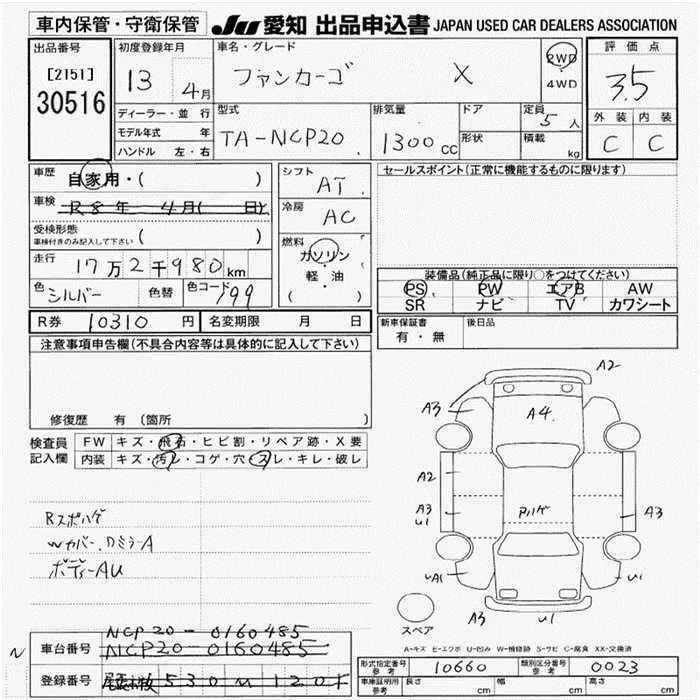 車内保管・守衛保管 JU 愛知 出品申込書 JAPAN USED CAR DEALERS ASSOCIATION
出品番号
[2151]
30516
初度登録年月
13 4月
ディーラー・並行
モデル年式 年
ハンドル 左・右
車名・グレード
ファンカーゴ X
2WD
4WD
型式
TA-NCP20
排気量
1300 cc
ドア
形状
定員
5 人
積載
kg
評価点
3.5
外装 内装
C C
車歴
自家用・( )
車検
R8年 4月( 日)
受検形態
車検付きのみ記入して下さい ( )
走行
17万2千980km
色 シルバー 色替 色コード 199
シフト
AT
冷房
AC
燃料
ガソリン
・
軽・油
( )
セールスポイント(正常に機能するものに限ります)
装備品(純正品に限り○をつけてください)
PS PW エアB AW
SR ナビ TV カワシート
R券 10310 円 名変期限 月 日
新車保証書
有・無
後日品
注意事項申告欄(不具合内容等は具体的に記入して下さい)
修復歴 有 (箇所 )
検査員
記入欄
FW キズ・飛石・ヒビ割・リペア跡・X要
内装 キズ・汚レ・コゲ・穴・スレ・キレ・破レ
Rスポハゲ
Wカバー、Dミラ-A
ボディーAU
A2
A3
A4
A2
A3
U1
Pハゲ
A3
UA1
U1
A3
U1
スペア
A-キズ E-エクボ U-凹み W-補修跡 S-サビ C-腐食 XX-交換済
NCP20-0160485
N
車台番号 NCP20-0160485
登録番号 530
型式指定番号
参考
10660
類別区分番号
参考
0023
車庫証明用
参考
長さ cm 幅 cm 高さ cm